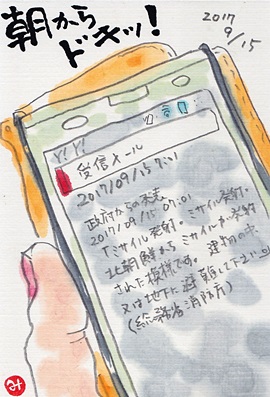 朝から
ドキッ!
2017
9/15
Y! Y!
受信メール
2017/09/15 7:01
政府からの発表
2017/09/15 07:01
「ミサイル発射。ミサイル発射。
北朝鮮からミサイルが発射
された模様です。建物の中、
又は地下に避難して下さい。」
(総務省消防庁)
み